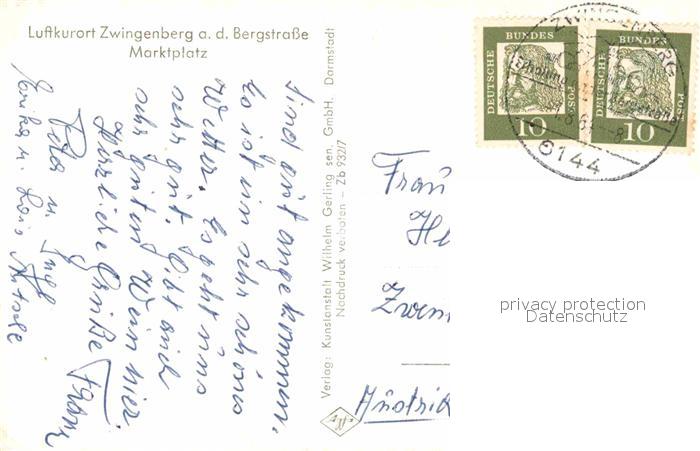 Luftkurort Zwingenberg a. d. Bergstraße
Marktplatz
Sind gut angekommen.
Es ist ein sehr schönes
Wetter. Es geht uns
sehr gut. Gibt auch
sehr guten Wein hier.
Herzliche Grüße Franz
Peter u. Inge
Erika u.
Verlag: Kunstanstalt Wilhelm Gerling sen. GmbH. Darmstadt
Nachdruck verboten – Zb 932/7
DEUTSCHE BUNDES POST
10
DEUTSCHE BUNDES POST
10
ZWINGENBERG
6144
Frau
He
Zwem
Austria
privacy protection
Datenschutz